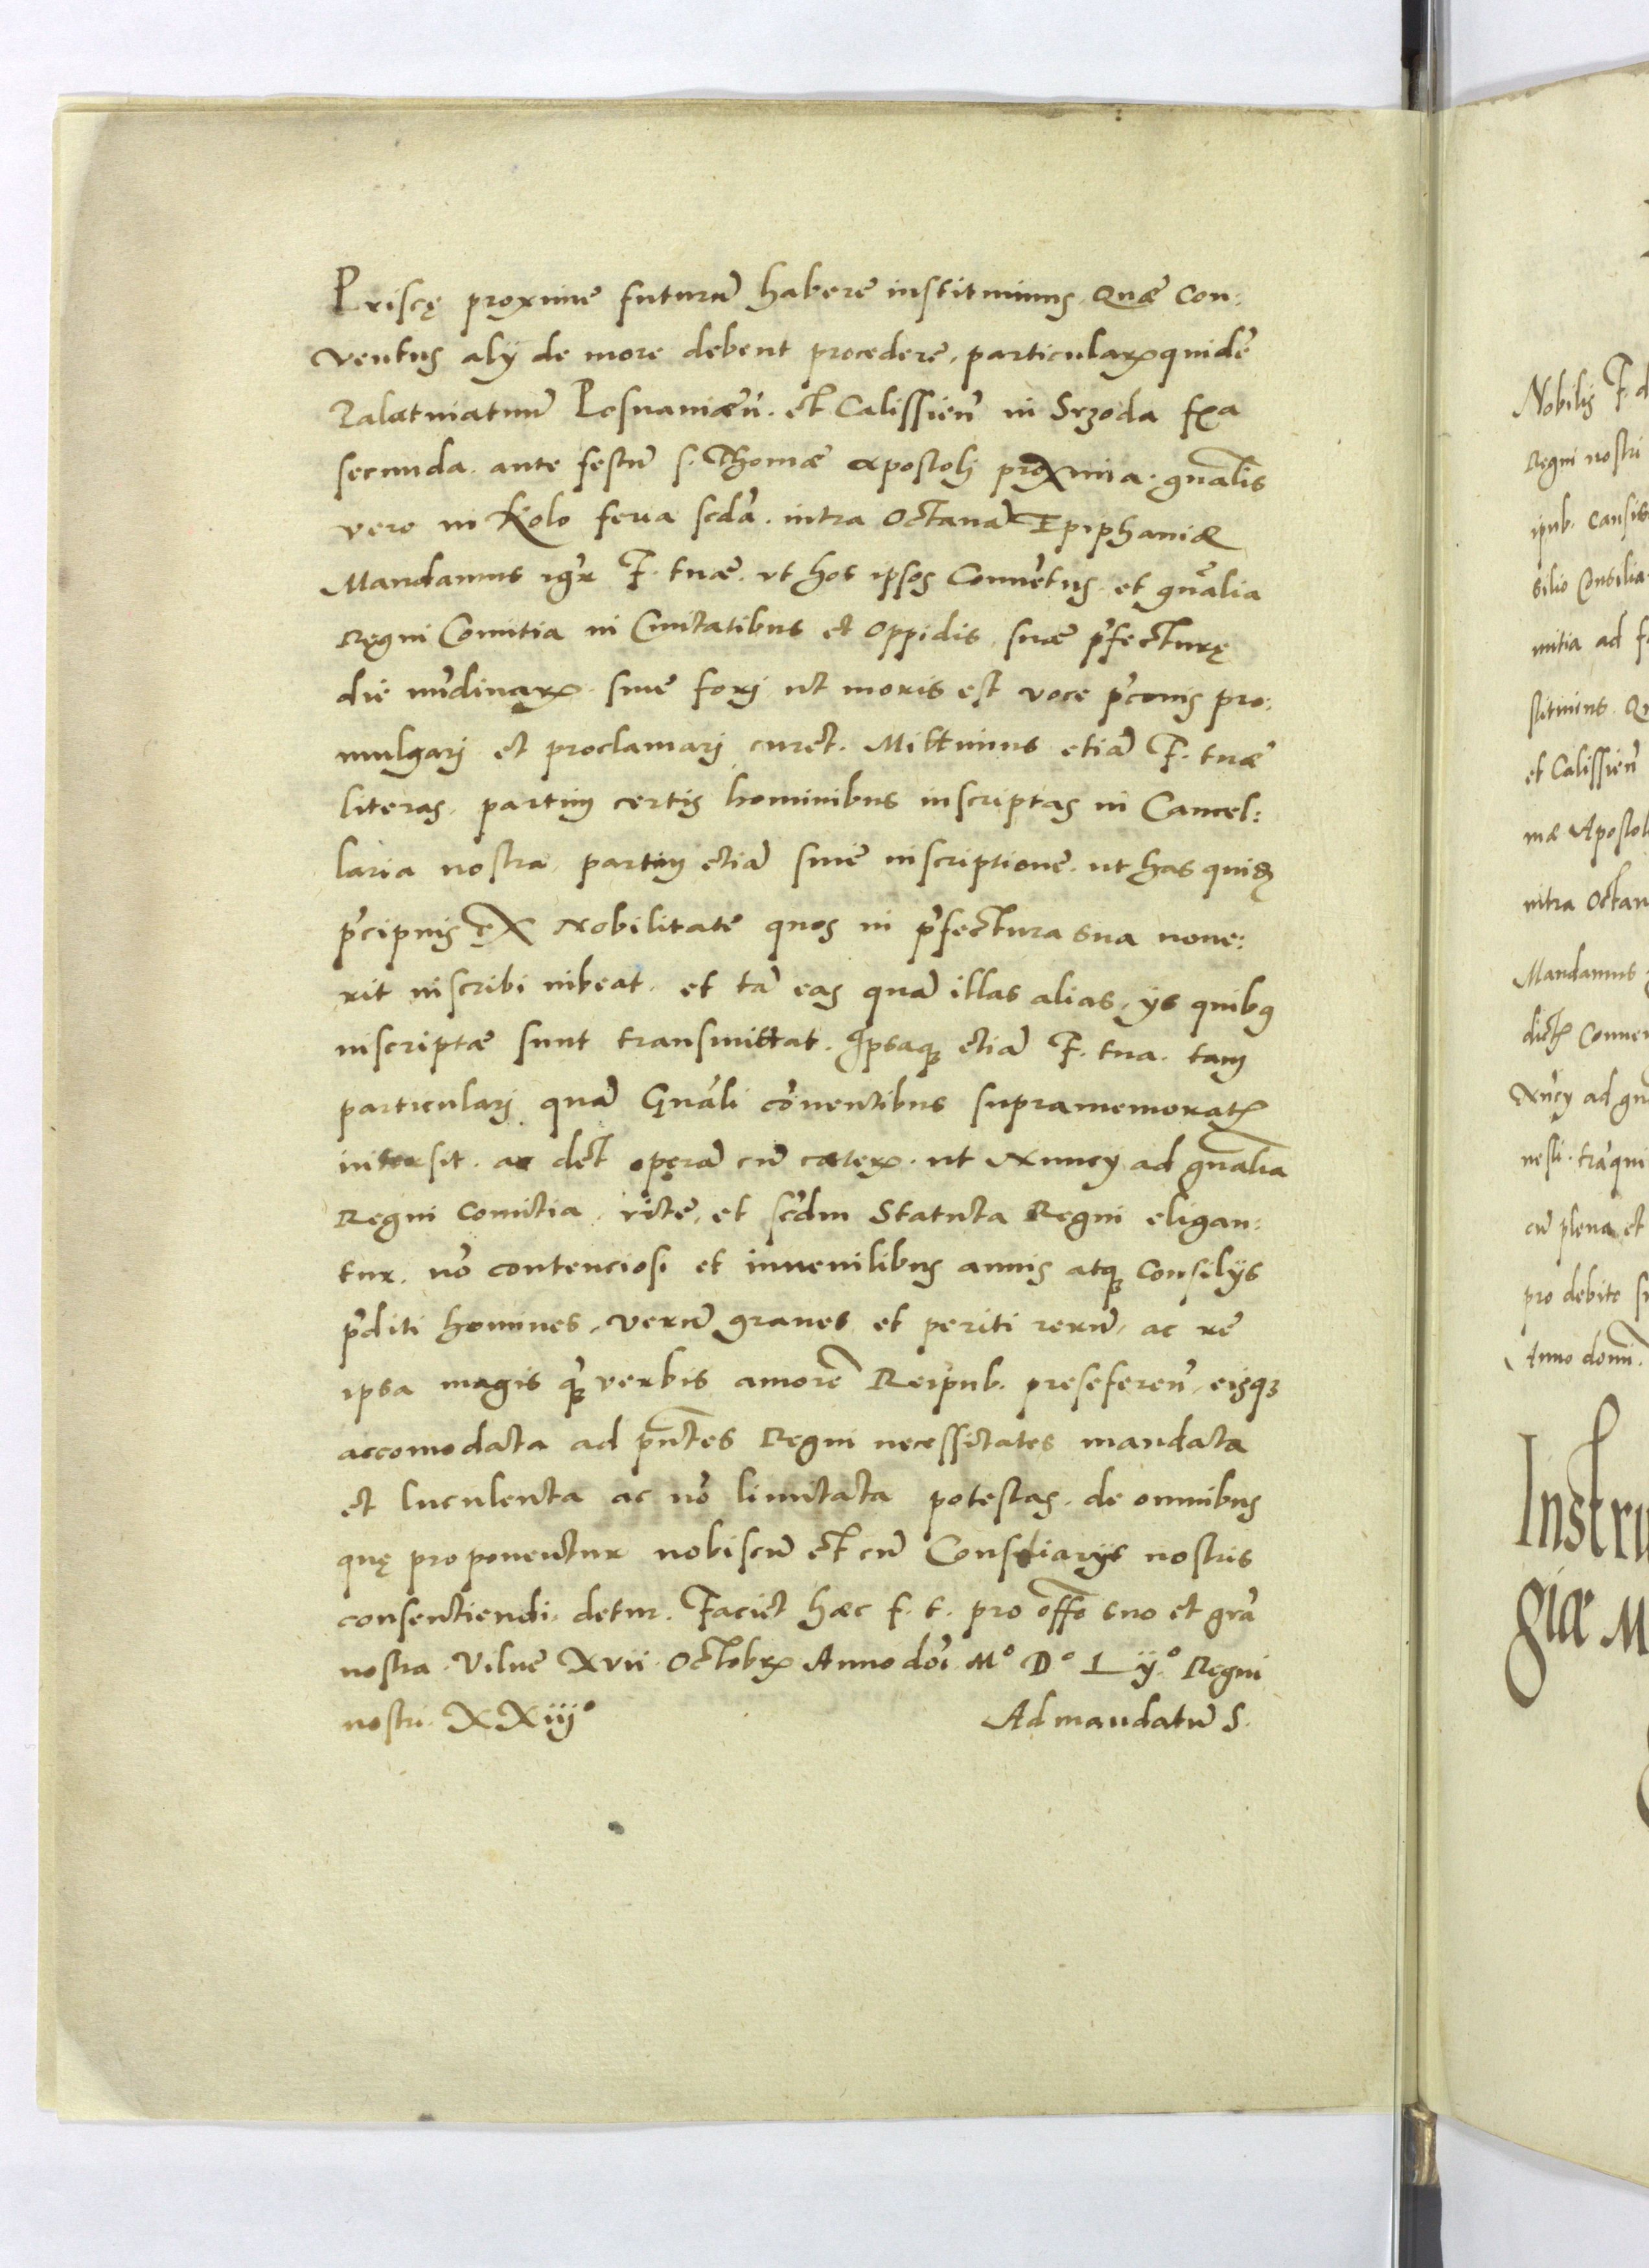 Priscę proxime futurũ habere instituimus. Quæ Con:
ventus alÿ de more debent procedere, particularꝝ quidẽ
Palatinatuũ Posnaniæñ. et Calissieñ in Srzoda fꝛ̃a
secunda. ante festũ s. Thomæ apostolj proxima. gñalis
vero in Kolo feria scđa. intra Octavã Epiphaniæ
Mandamus igr̃ F. tuæ. ut hos ipsos Convẽtus et gñalia
Regni Comitia in Civitatibus et oppidis suæ p̃fecturę
die nũdinarꝝ. sive forj ut moris est voce p̃conis pro:
mulgarj et proclamarj curet. Mittimus etiã F. tuæ
literas, partim certis hominibus inscriptas in Cancel:
laria nostra, partim etiã sine inscriptione. ut has quibꝫ
p̃cipuis ex Nobilitate quos in p̃fectura sua nove:
rit inscribi iubeat. et tã eas quã illas alias, ÿs quibꝰ
inscriptæ sunt transmittat. Ipsaqꝫ etiã F. tua. tam
particularj quã Gñali cõventibus supramemoratꝭ
intersit. ac det operã cũ cæterꝭ. ut Nuncÿ ad gñalia
Regni comitia, rite, et scđm Statuta Regni eligan:
tur. nõ contenciosi et iuvenilibus annis atqꝫ Consilÿs
p̃diti homines, verũ graves et periti rerũ, ac re
ipsa magis q̃ verbis amorẽ Reipub. preseferen̄, eisqꝫ
accomodata ad p̃ntes Regni necessitates mandata
et luculenta ac nõ limitata potestas. de omnibus
quę proponentur nobiscũ et cũ Consiliarÿs nostris
consentiendi, detur. Faciet hæc f. t. pro off̃o suo et gr̃a
nostra. Vilnæ XVII Octobrꝭ Anno dñi Mº Dº Lijº Regni
nostri XXiijº
Ad mandatũ S.
Nobilis F. d
Regni nostri
ipub. causis
silio Consilia
mitia ad f
stituimus. Q
et Calissieñ
mæ Apostol
intra Octav
Mandamus
dictꝭ Conven
Nũcÿ ad gn
nesti. trãqui
cũ plena et
pro debito s
Anno domĩ.
Instru
giæ M